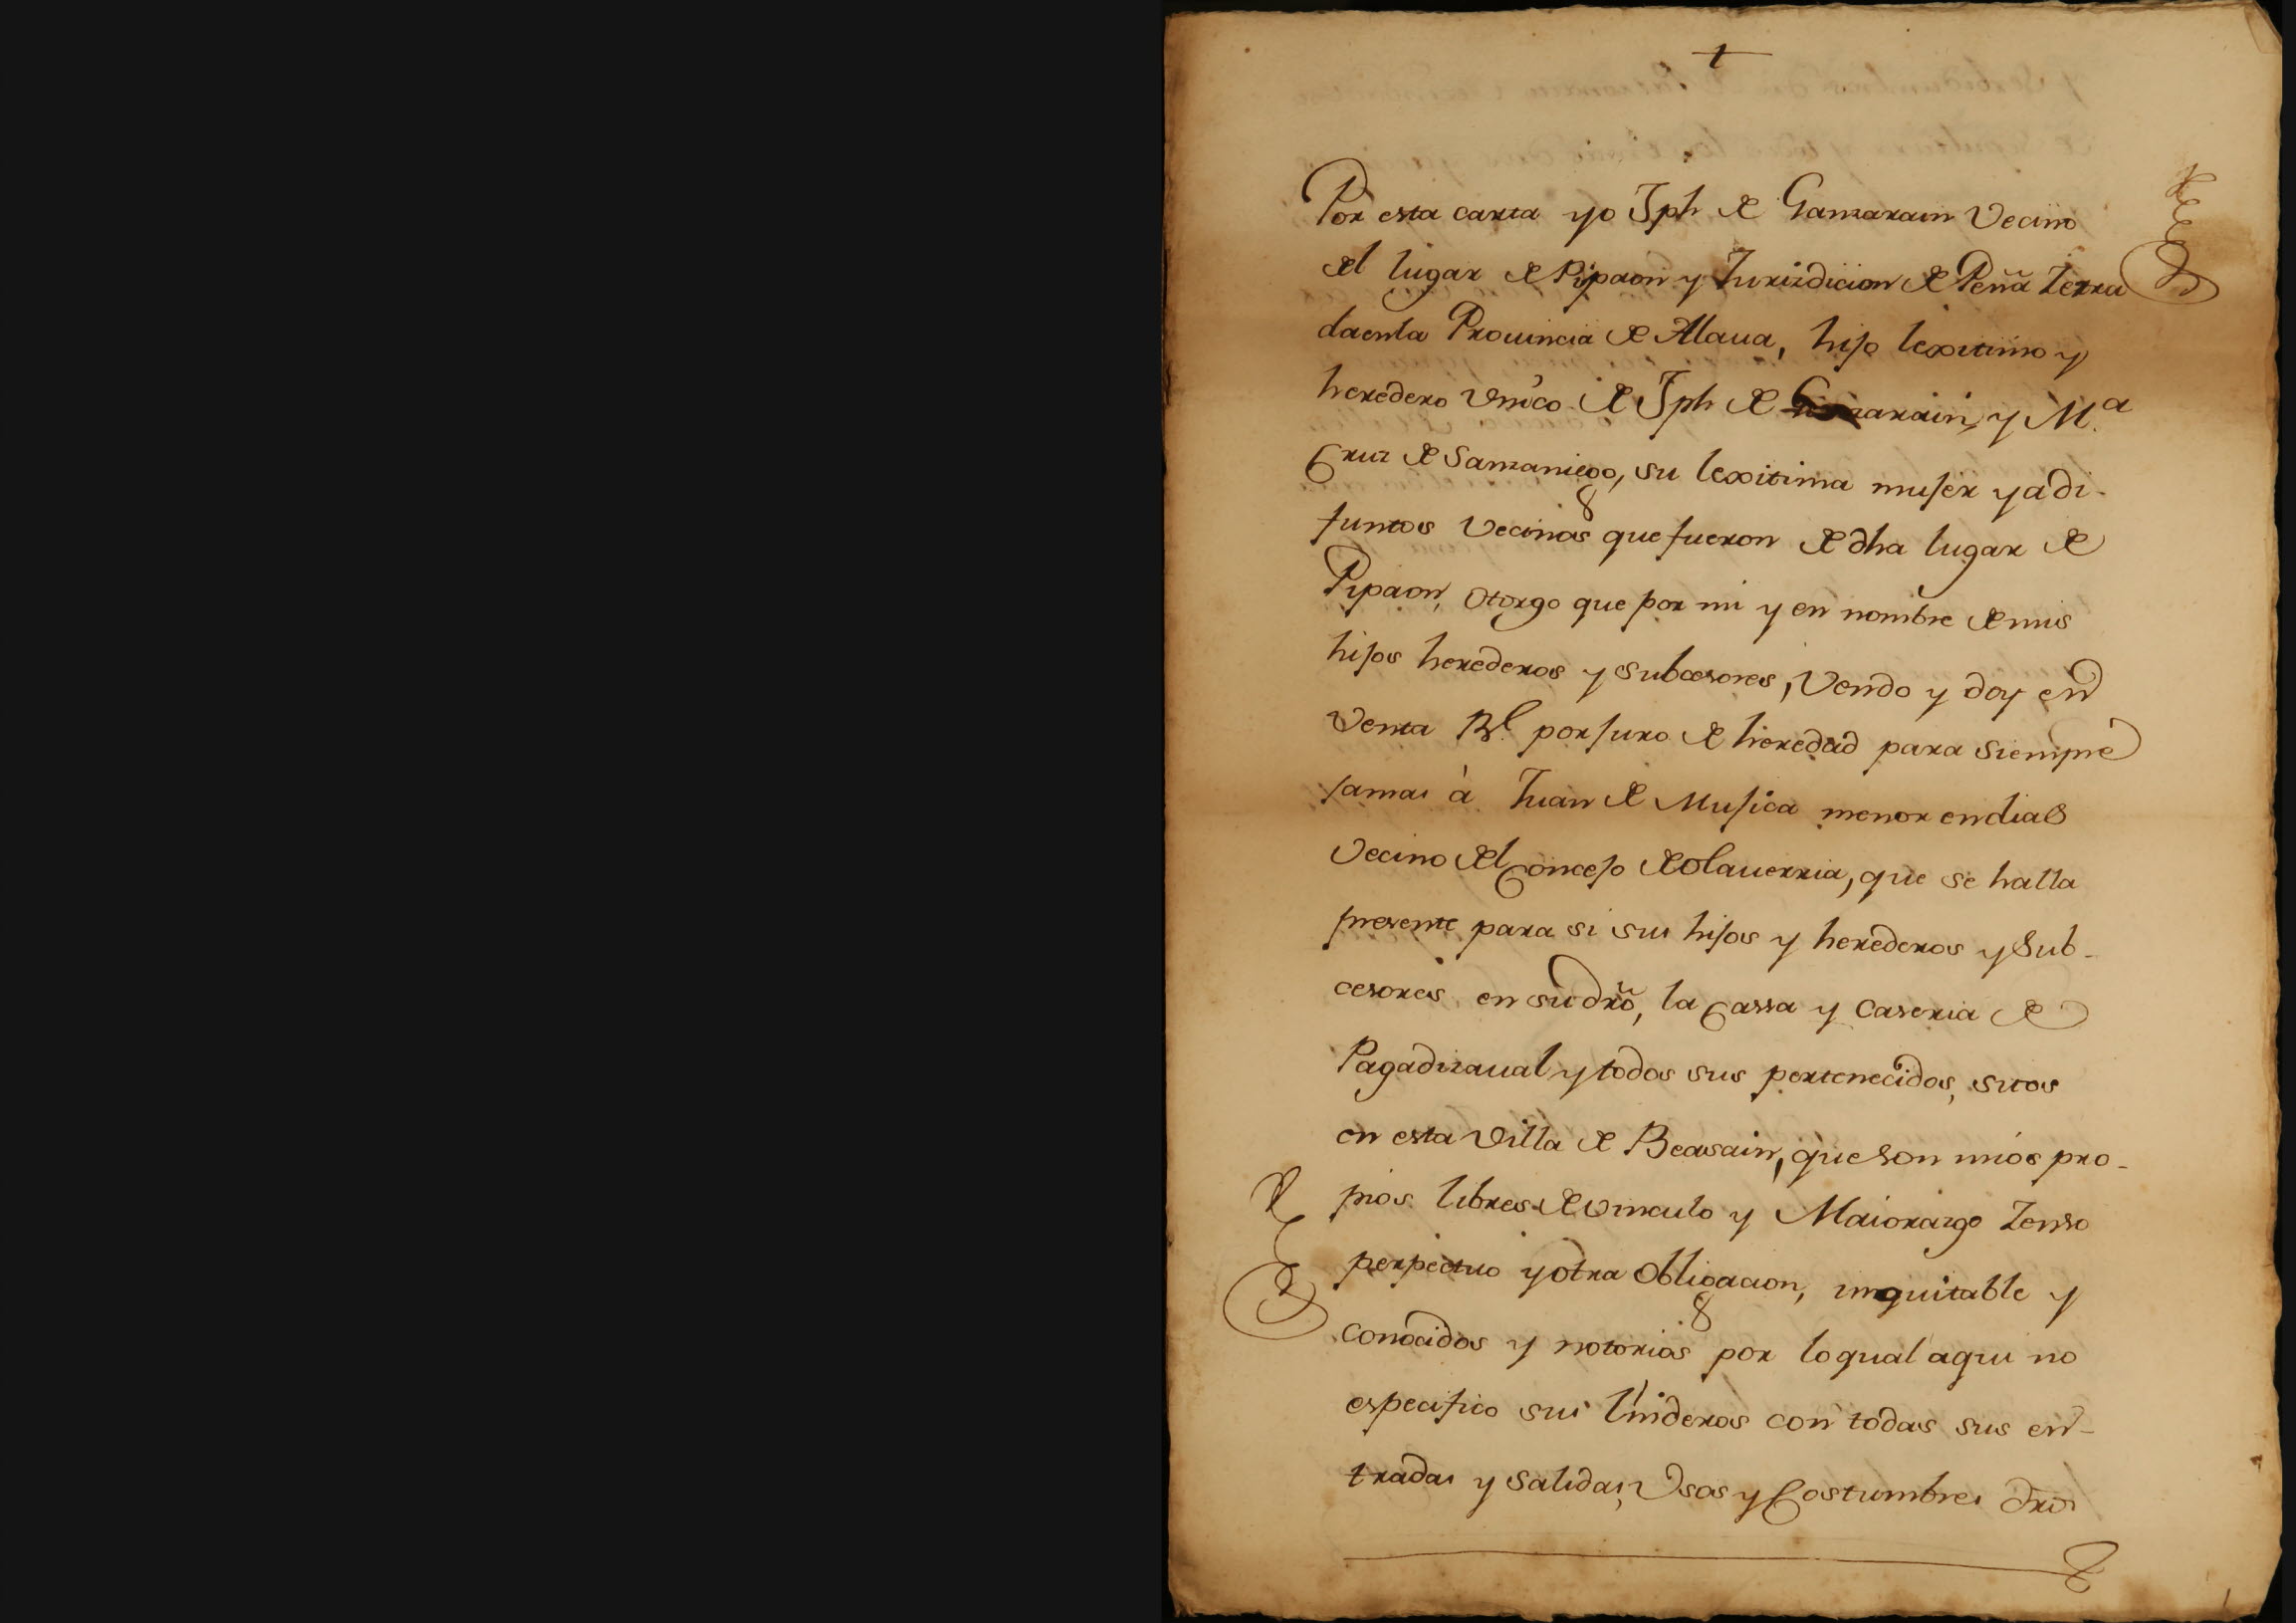 +
Por esta carta yo Jph de Gamarain Vecino
del lugar de Pipaon y Jurizdicion de Peña Zerra
daenla Prouincia de Alaua, hijo lexitimo y
heredero vnico de Jph de Gamarain, y M.ª
Cruz de Samaniego, su lexitima mujer ya di-
funtos Vecinos que fueron de dha lugar de
Pipaon, otorgo que por mi y en nombre de mis
hijos herederos y subcesores, Vendo y doy en
Venta Rl. por juro de heredad para siempre
jamas à Juan de Mujica menor en dias
Vecino del Concejo de olauerria, que se halla
presente para si sus hijos y herederos y sub-
cesores en su dro, la Cassa y Caseria de
Pagadizaual y todos sus pertenecidos, sitos
en esta Villa de Beasain, que son mios pro-
pios libres de vinculo y Maiorazgo Zenso
perpetuo y otra obligacion, inquitable y
conocidos y notorios por lo qual aqui no
especifico sus linderos con todas sus en-
tradas y salidas, Vsos y Costumbres dros